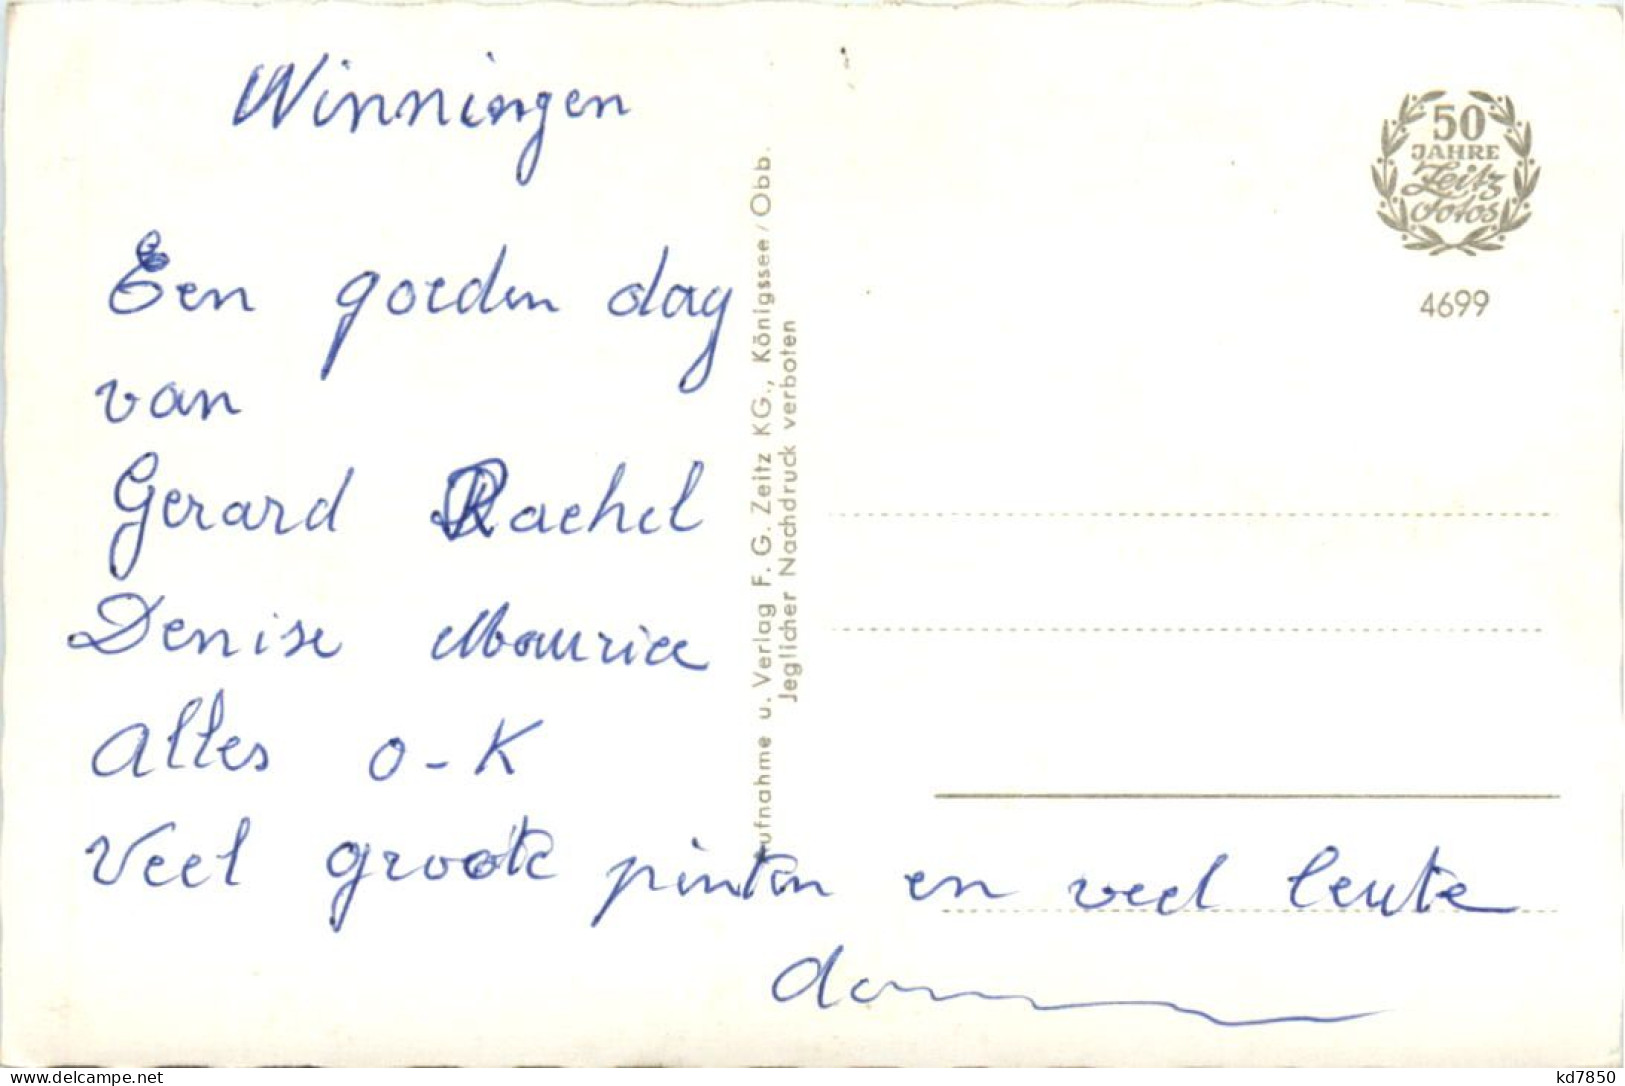 Winningen
Een goeden dag
van
Gerard Rachel
Denise Maurice
Alles O-K
Veel groote pinten en veel leute
Aufnahme u. Verlag F. G. Zeitz KG., Königssee/Obb.
Jeglicher Nachdruck verboten
50
JAHRE
Zeitz
Fotos
4699
akpool.de
kd7850